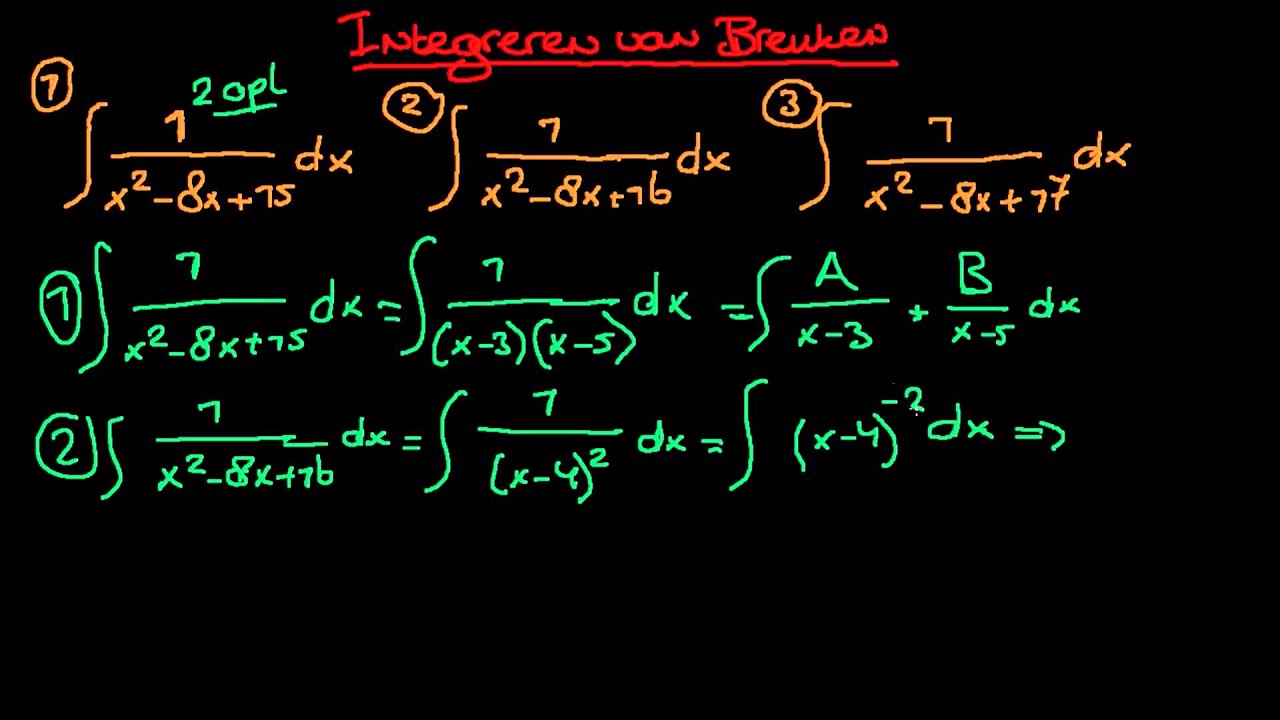 Integreren van Breuken
① 2 opl ② ③
∫ 1/(x²-8x+15) dx ∫ 1/(x²-8x+16) dx ∫ 1/(x²-8x+17) dx
① ∫ 1/(x²-8x+15) dx = ∫ 1/((x-3)(x-5)) dx = ∫ A/(x-3) + B/(x-5) dx
② ∫ 1/(x²-8x+16) dx = ∫ 1/(x-4)² dx = ∫ (x-4)⁻² dx ⇒